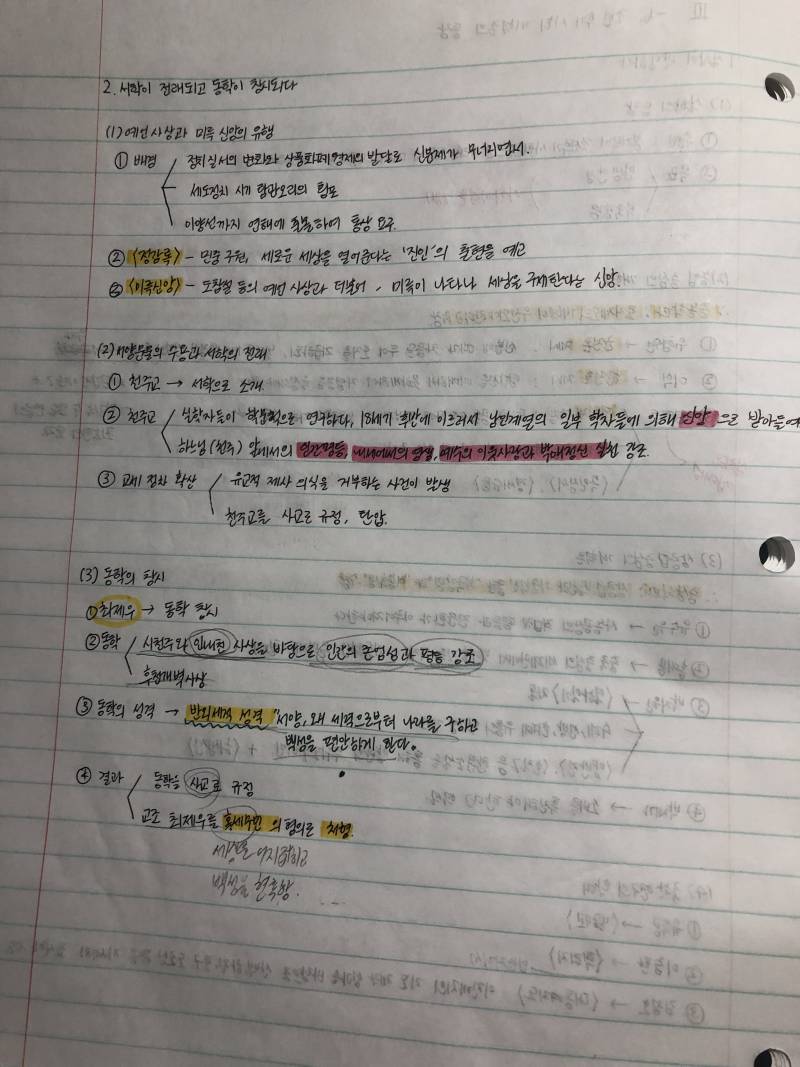 2. 서학이 전래되고 동학이 창시되다
(1) 예언 사상과 미륵 신앙의 유행
① 배경 정치 질서의 변화와 상품화폐경제의 발달로 신분제가 무너지면서.
세도정치 시기 탐관오리의 횡포
이양선까지 연해에 출몰하여 통상 요구.
② <정감록> - 민중 구원, 새로운 세상을 열어준다는 '진인'의 출현을 예고
③ <미륵신앙> - 도참설 등의 예언 사상과 더불어, 미륵이 나타나 세상을 구제한다는 신앙.
(2) 서양문물의 수용과 서학의 전래
① 천주교 → 서학으로 소개.
② 천주교 실학자들이 학문적으로 연구하다, 18세기 후반에 이르러서 남인계열의 일부 학자들에 의해 신앙으로 받아들여
하느님(천주) 앞에서의 인간평등, 내세에서의 영생, 예수의 이웃사랑과 박애정신 실천 강조.
③ 교세 점차 확산 유교적 제사 의식을 거부하는 사건이 발생
천주교를 사교로 규정, 탄압.
(3) 동학의 창시
① 최제우 → 동학 창시
② 동학 시천주와 인내천 사상을 바탕으로 인간의 존엄성과 평등 강조
후천개벽사상
③ 동학의 성격 → 반외세적 성격 "서양, 왜 세력으로부터 나라를 구하고
백성을 편안하게 한다.
④ 결과 동학을 사교로 규정
교조 최제우를 혹세무민의 혐의로 처형.
세상을 어지럽히고
백성을 현혹함.